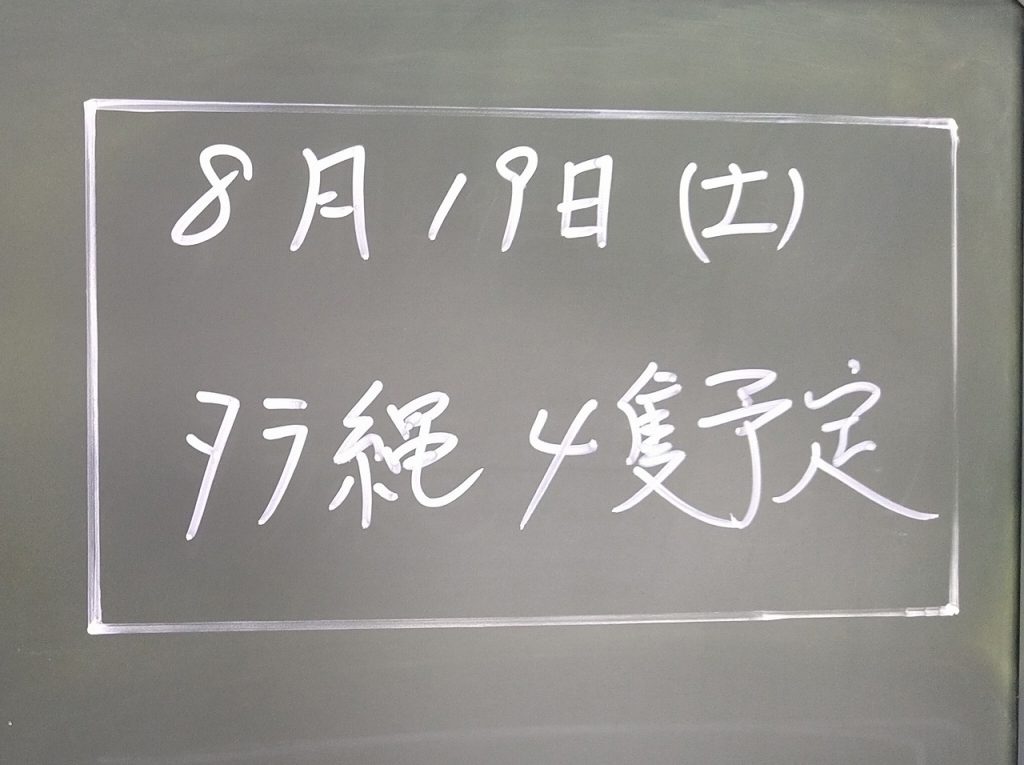 8月19日(土)
タラ縄 4隻予定